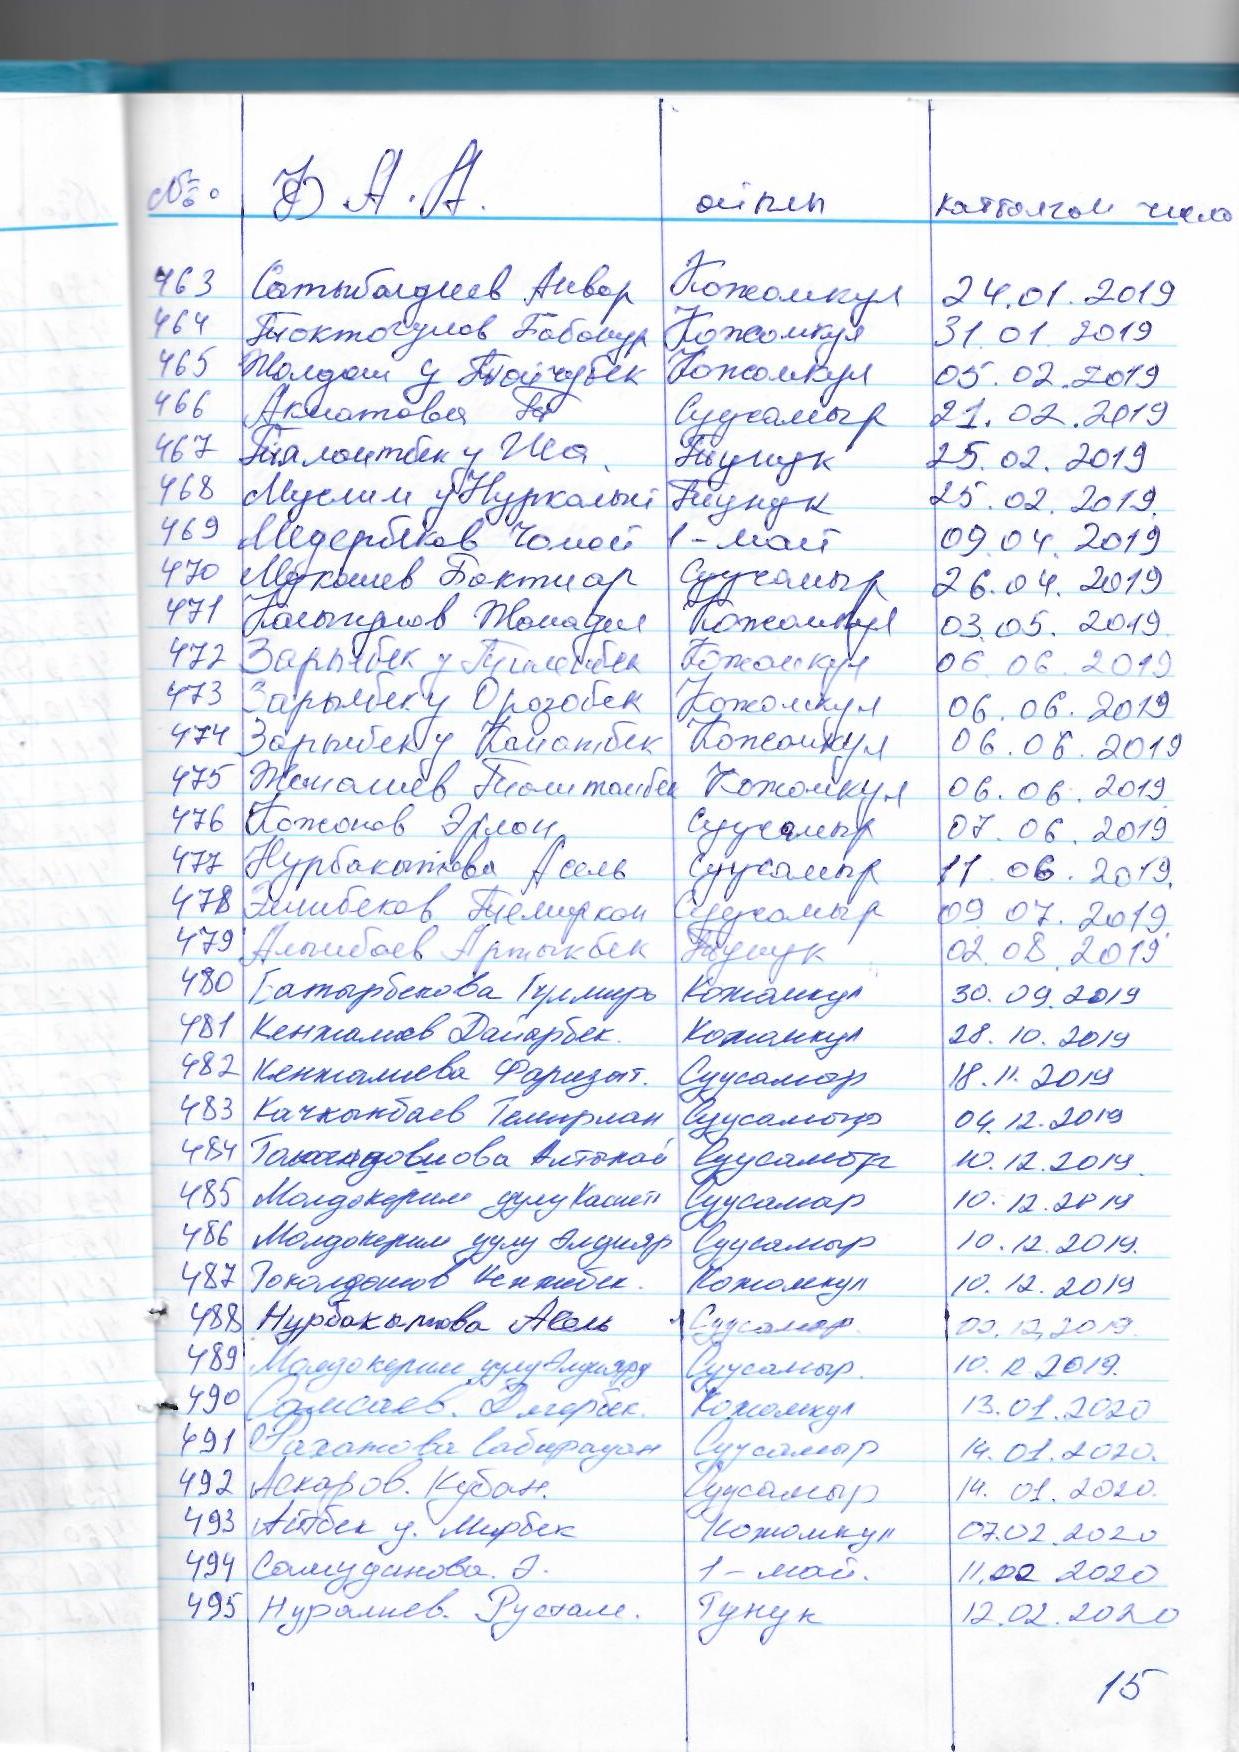 № Ф А. А. айылы катталган число
463 Сатыбалдиев Анвар Кожомкул 24.01.2019
464 Токтогулов Бабанур Кожомкул 31.01.2019
465 Жолдош у Тойчубек Кожомкул 05.02.2019
466 Акматова Суусамыр 21.02.2019
467 Таалайтбек у Иса Тунук 25.02.2019
468 Муслим у Нуркалый Тунук 25.02.2019.
469 Медербеков Чомой 1-май 09.04.2019
470 Мукашев Бактияр Суусамыр 26.04.2019
471 Калыгулов Жанадил Кожомкул 03.05.2019
472 Зарылбек у Тилебек Кожомкул 06.06.2019
473 Зарылбек у Орозобек Кожомкул 06.06.2019
474 Зарылбек у Канатбек Кожомкул 06.06.2019
475 Жумалиев Кожомкул 06.06.2019
476 Кожоков Эрлан Суусамыр 07.06.2019
477 Нурбакытова Асель Суусамыр 11.06.2019.
478 Эшибеков Темиркан Суусамыр 09.07.2019
479 Алымбаев Артыкбек Тунук 02.08.2019
480 Батырбекова Гулмира Кожомкул 30.09.2019
481 Кенжалиев Данарбек. Кожомкул 28.10.2019
482 Кенжалиева Фаризат. Суусамыр 18.11.2019
483 Качкынбаев Темирлан Суусамыр 04.12.2019
484 Алтынай Суусамыр 10.12.2019.
485 Молдокерим уулу Суусамыр 10.12.2019
486 Молдокерим уулу Элдияр Суусамыр 10.12.2019.
487 Токолдошов Кенжебек. Кожомкул 10.12.2019
488 Нурбакытова Асель Суусамыр. 12.2019.
489 Молдокерим уулу Элдияр Суусамыр. 10.12.2019.
490 Самсаев. Кожомкул 13.01.2020
491 Рахатова Сабыражан Суусамыр 14.01.2020.
492 Аскаров. Кубан. Суусамыр 14.01.2020.
493 Айтбек у. Мирбек Кожомкул 07.02.2020
494 Самуданова. Э. 1-май. 11.02 2020
495 Нуралиев. Рустам. Тунук 12.02.2020
15